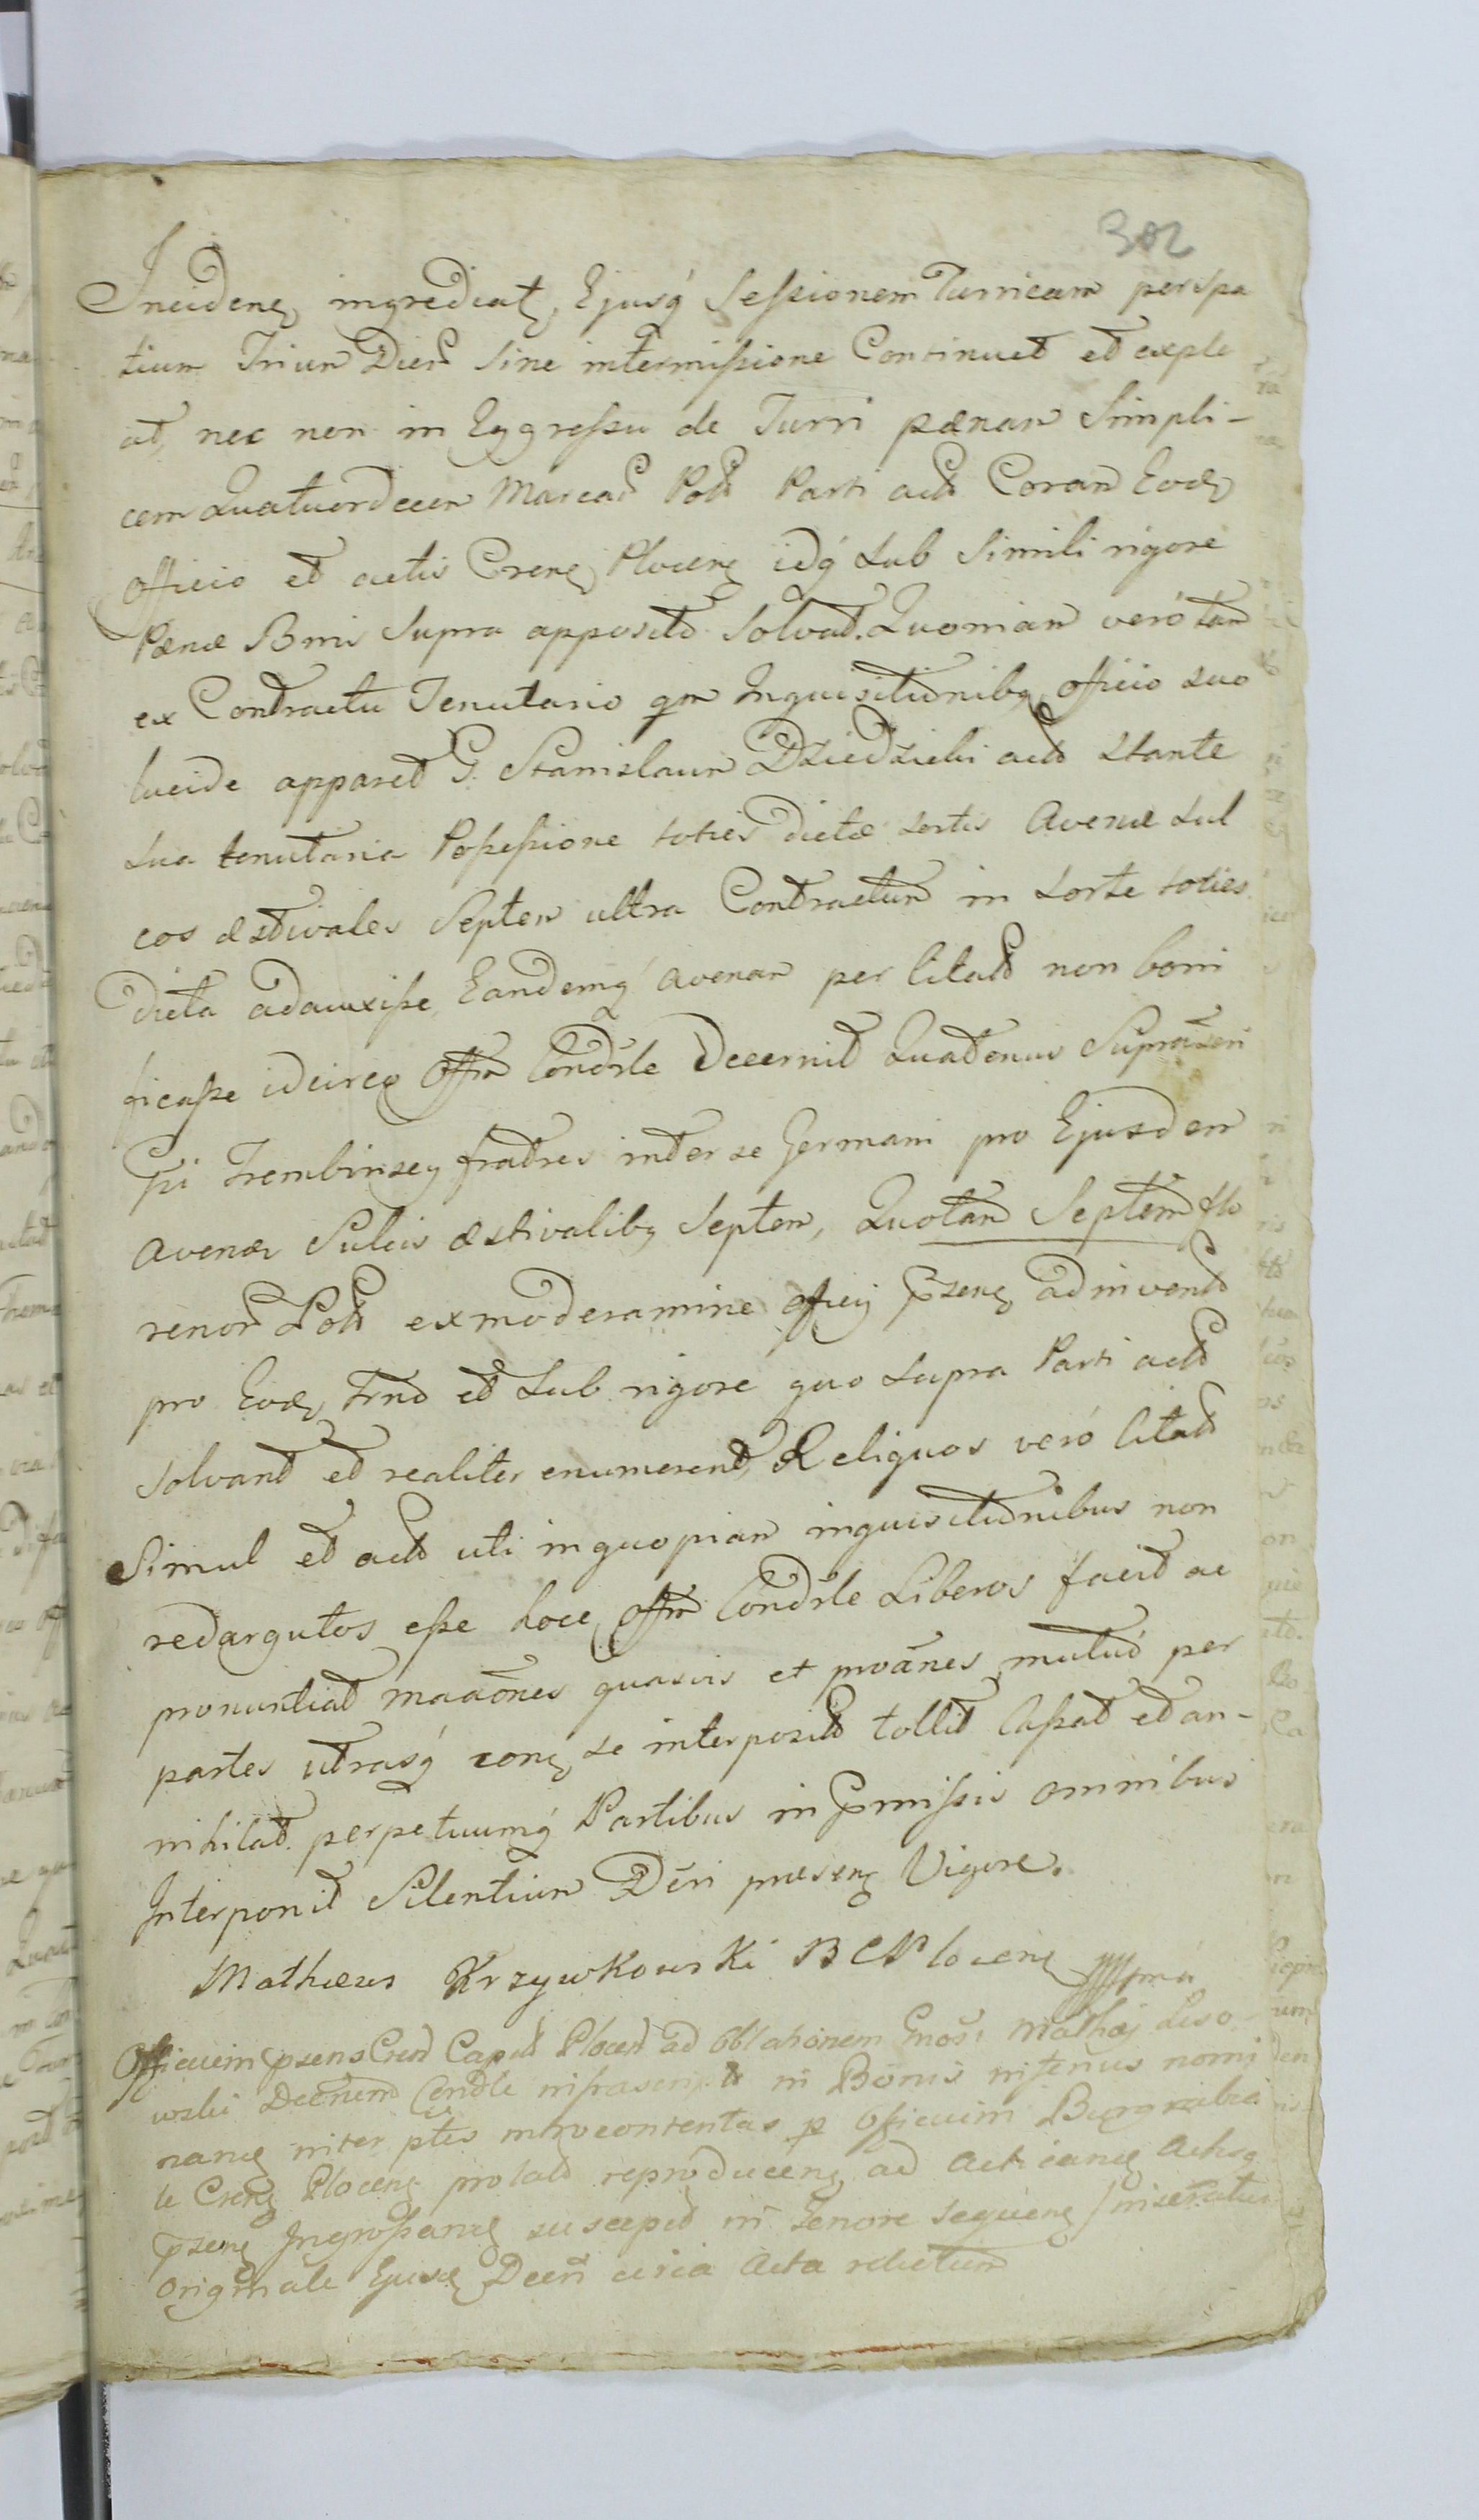 302
Incidenę ingrediat, Ejusq́ Seſsionem Turricam per spa
tium Triun Dierū Sine intermiſsione Continuet et exple
at, nec non in Eggreſsu de Turri pænan Simpli-
cem Quatuordecen Marcarū Poł Parti act Coran Eodę
officio et actis Crenę Plocenę idq́ Sub Simili rigore
Pænæ Bmis Supra apposit Solvat. Quonian veró tam
ex Contractu Tenutario qm Inquisitionibq officio suo
lucide apparet G. Stanislaun Dziedzicki act Stante
sua tenutaria Poſseſsione toties dictæ sortis Avenæ sul
cos æstivales Septen ultra Contractum in sorte toties
dicta adauxiſse Eandemq́ avenan per Citat non boni
ficaſse idcirco Offm Condsle Decernit Quatenus Suprascri
Gsi Trembinscy fratres inter se Germani pro Ejusdem
avenæ Sulcis æstivalibq Septem, Quotam Septem flo
renorū Poł ex moderamine officij pzenę adinvent
pro Eodę Tmo et Sub rigore quo supra Parti act
solvant et realiter enumerent, Reliquos veró Citat
Simul et act uti in quopian inquisitionibus non
redargutos eſse hocę Offm Condsle Liberos facit ac
pronuntiat maāones quasvis et proānes mutuó per
partes utrasq́ conę se interposit tollit Caſsat et an-
nihilat perpetuumq́ Partibus in pmiſsis omnibus
Interponit Silentiun Dēri præsenę Vigore.
Mathæus Krzywkowski B C Plocenę mpria
Officium psens Cren Capit Plocen ad oblationem Gnosi Mathæj Liso
wski Decretum Condle infrascript in Bonis inferius nomi
nanę inter ptes introcontentas p officium Burgrabia
le Crenę Plocenę prolat reproducenę ad Acticanę Actisq
pzenę Ingroſsanę suscepit in Tenore sequenę / inseratur
Originale Ejusdę Decri circa Acta relictum